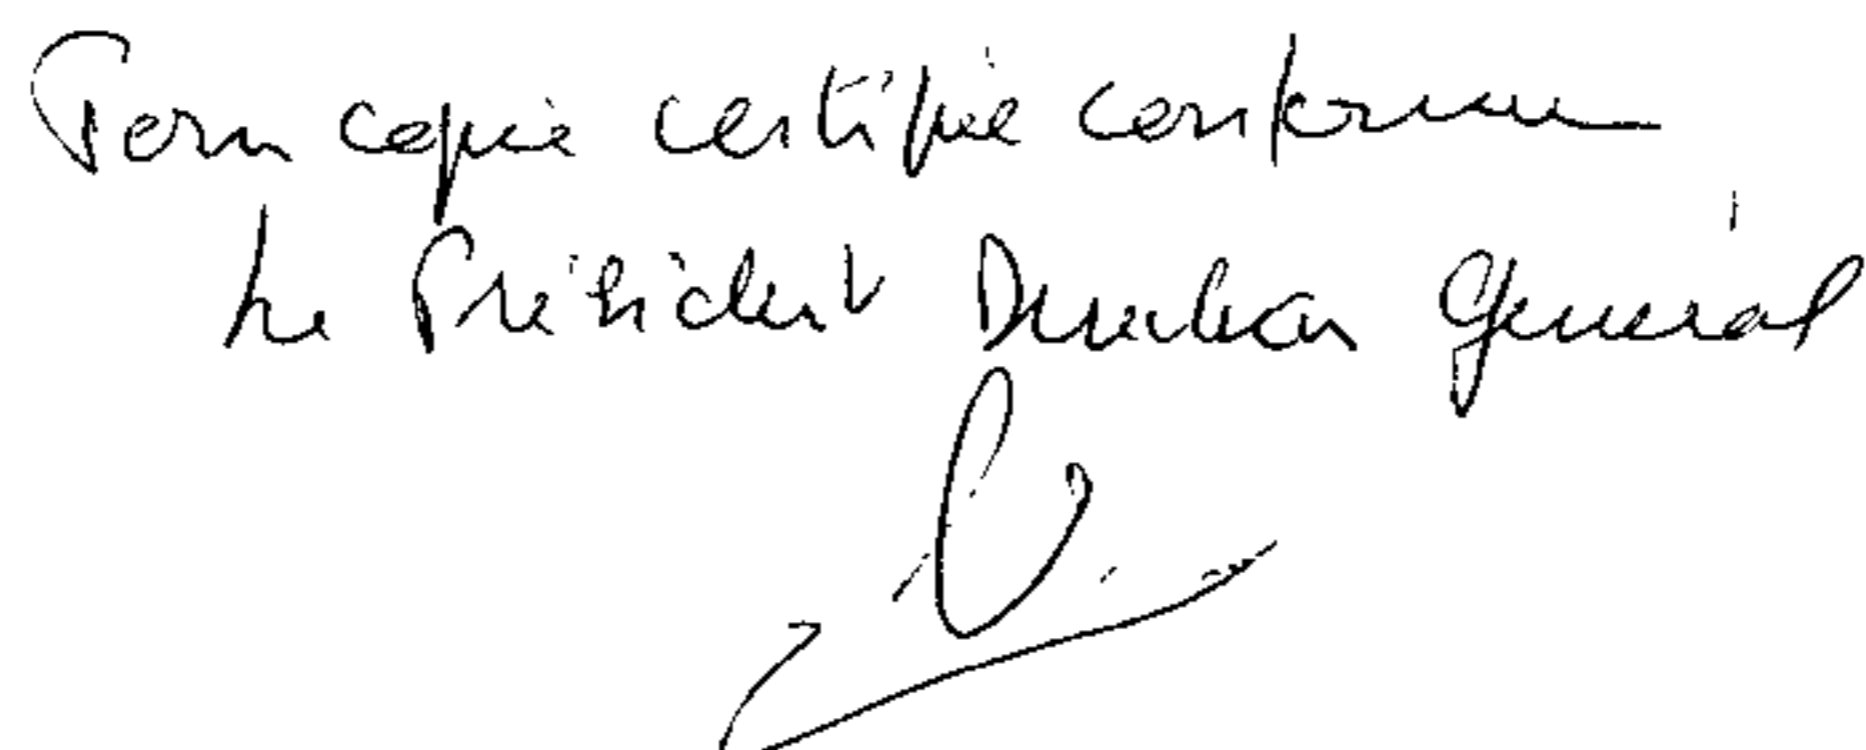 Pour copie certifiée conforme
Le Président Directeur Général